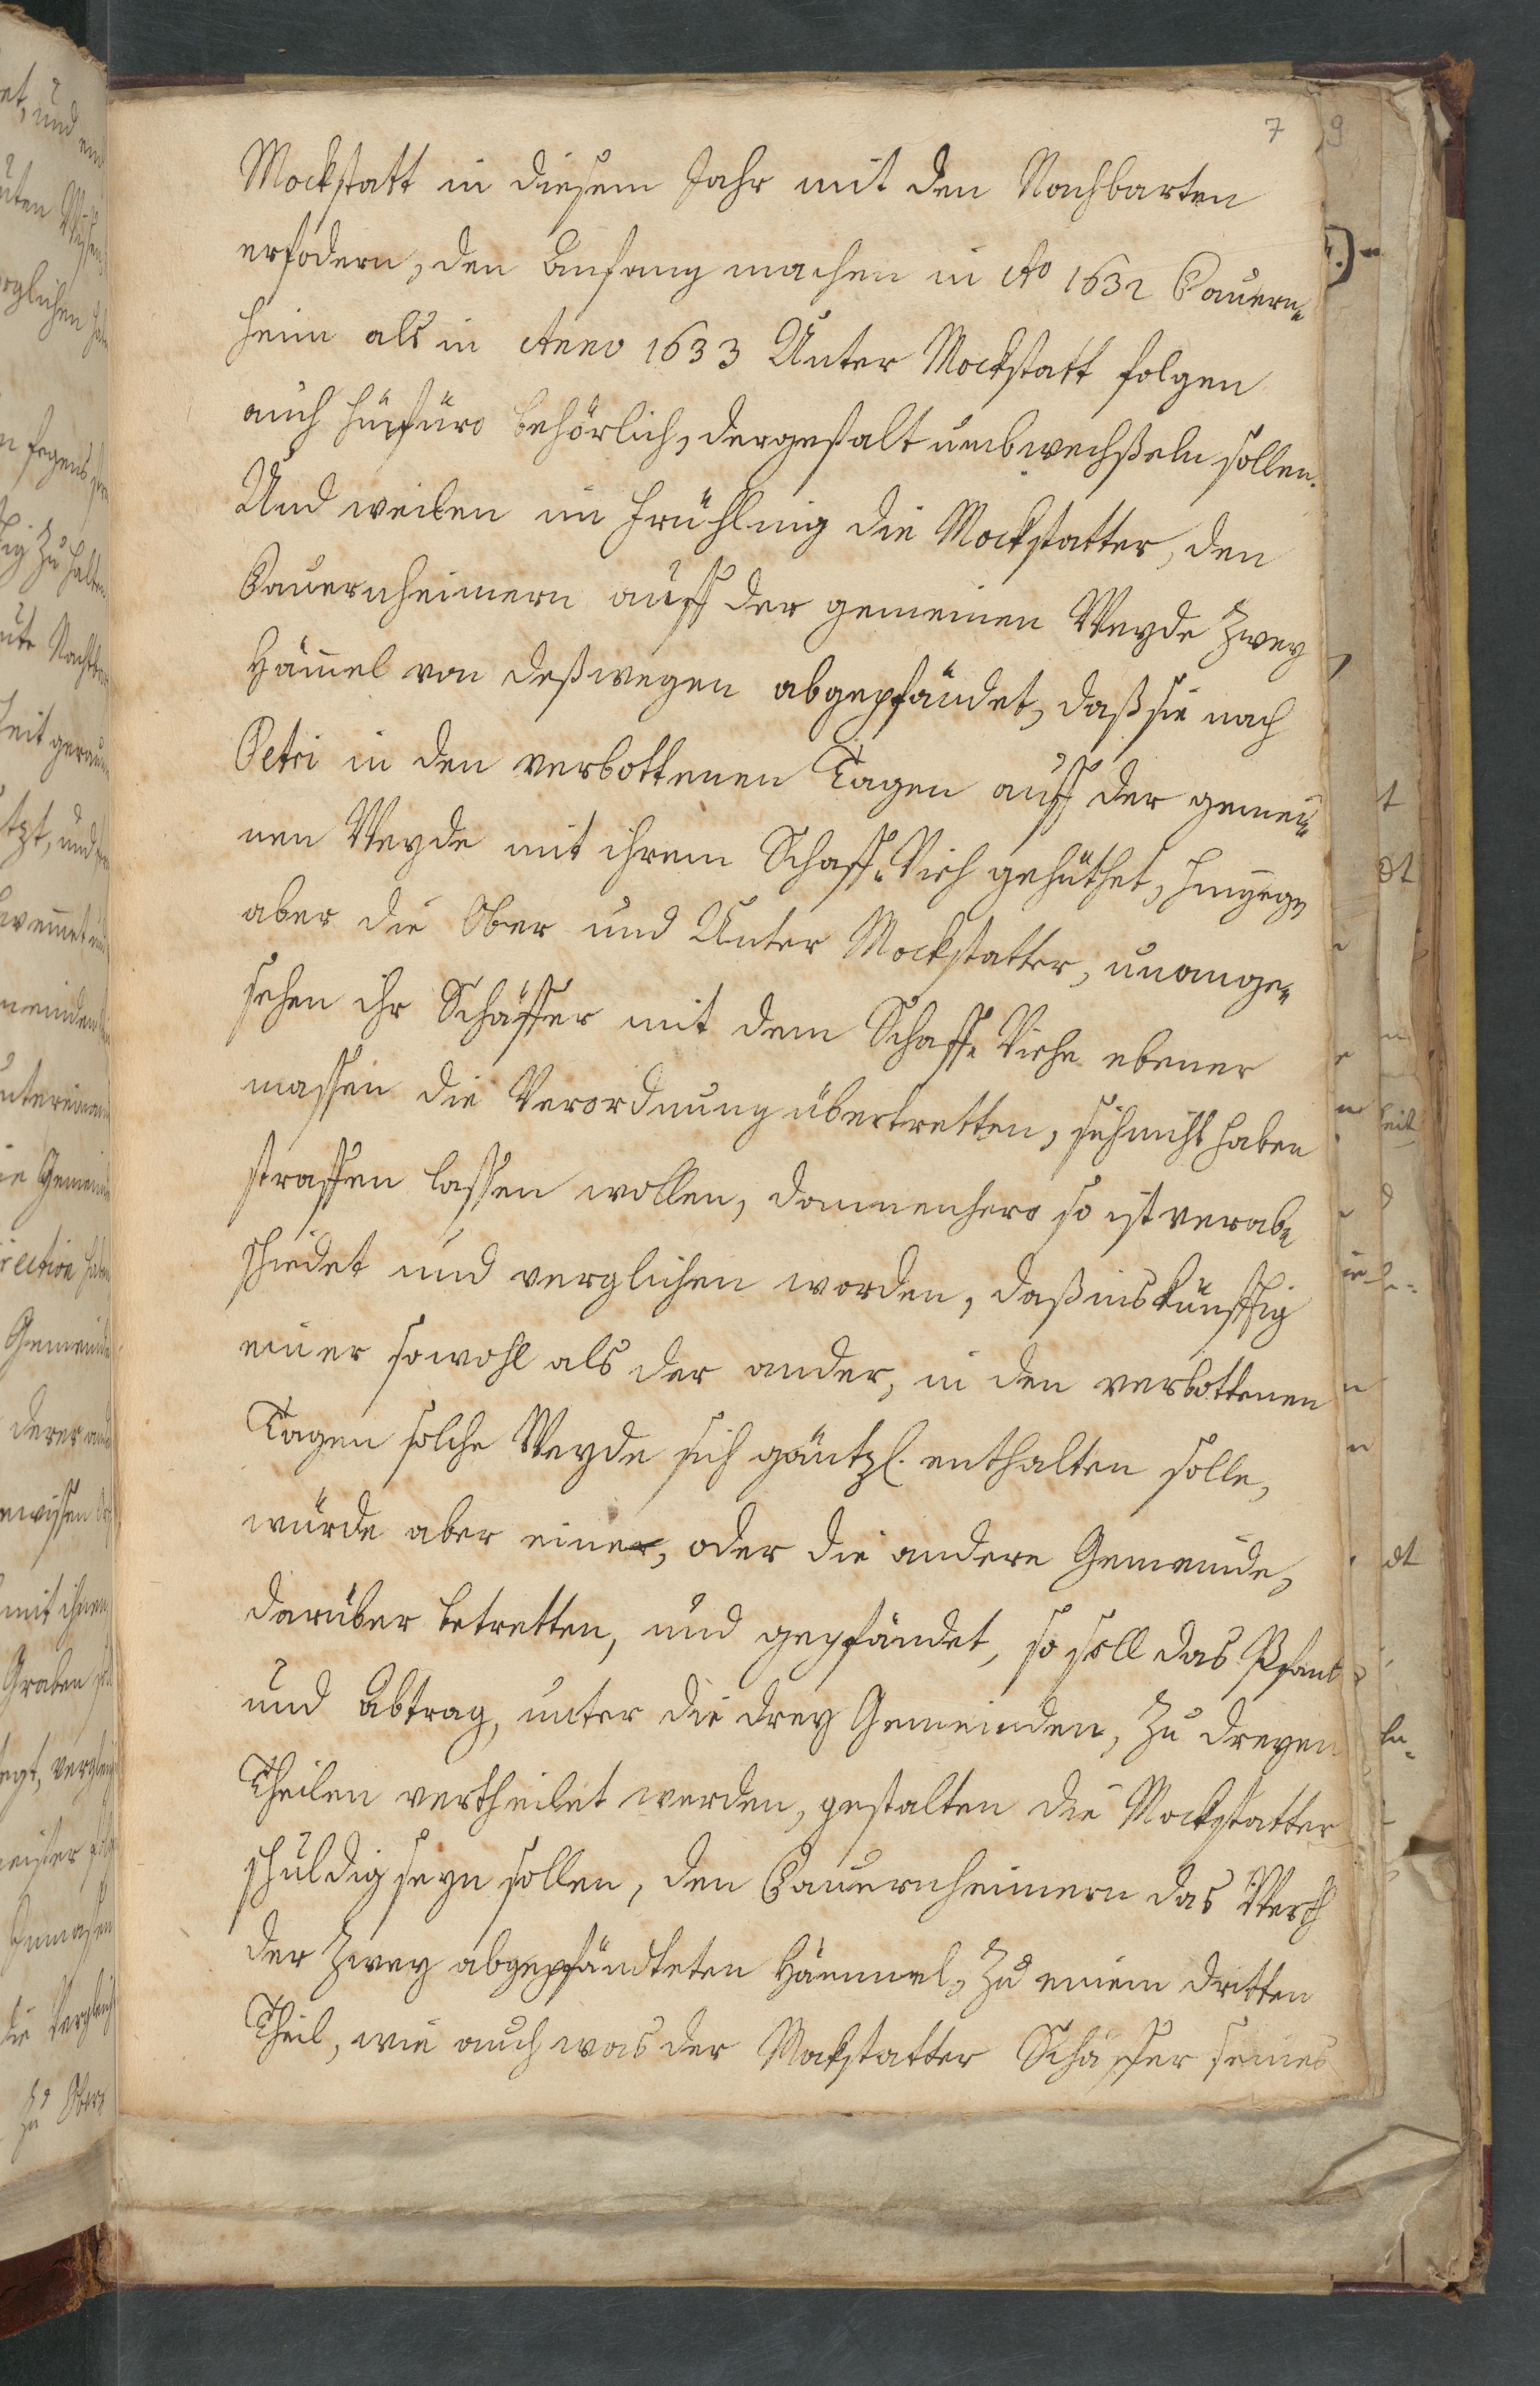 7 9
Mockstatt in diesem Jahr mit den Nachbarten
erfodern, den Anfang machen in Ao 1632 Bauern¬
heim als in Anno 1633 Unter Mockstatt folgen
auch hinfüro behörlich, dergestalt umbwechßeln sollen.
Und weilen im Frühling die Mockstatter, den
Bauernheimern auff der gemeinen Weyde zwey
Häm̄el von deßwegen abgepfändet, daß sie nach
Petri in den verbottenen Tagen auff der gemei¬
nen Weyde mit ihrem Schaff-Vieh gehüthet, hingegen
aber die Ober und Unter Mockstatter, unange¬
sehen ihr Schäffer mit dem Schaff-Viehe ebener
massen die Verordnung übertretten, sich nicht haben
straffen lassen wollen, dannenhero so ist verab¬
schiedet und verglichen worden, daß ins künfftig
einer sowohl als der ander, in den verbottenen
Tagen solche Weyde sich gäntzl. enthalten solle,
würde aber einer, oder die andere Gemeinde,
darüber betretten, und gepfändet, so soll das Pfand
und Abtrag, unter die drey Gemeinden, zu dreyen
Theilen vertheilet werden, gestalten die Mockstatter
schuldig seyn sollen, den Bauernheimern das Werth
der zwey abgepfändteten Hämmel, zu einem dritten
Theil, wie auch was der Mockstatter Schäffer seines